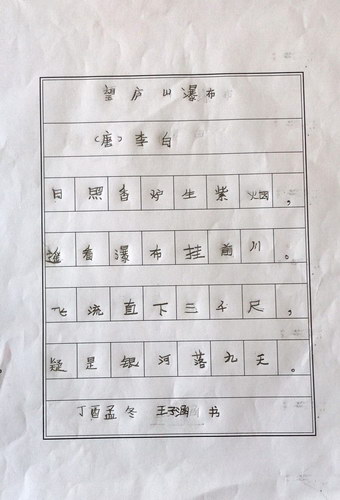 望庐山瀑布
（唐）李白
日照香炉生紫烟，
遥看瀑布挂前川。
飞流直下三千尺，
疑是银河落九天。
丁酉孟冬 王子涵 书